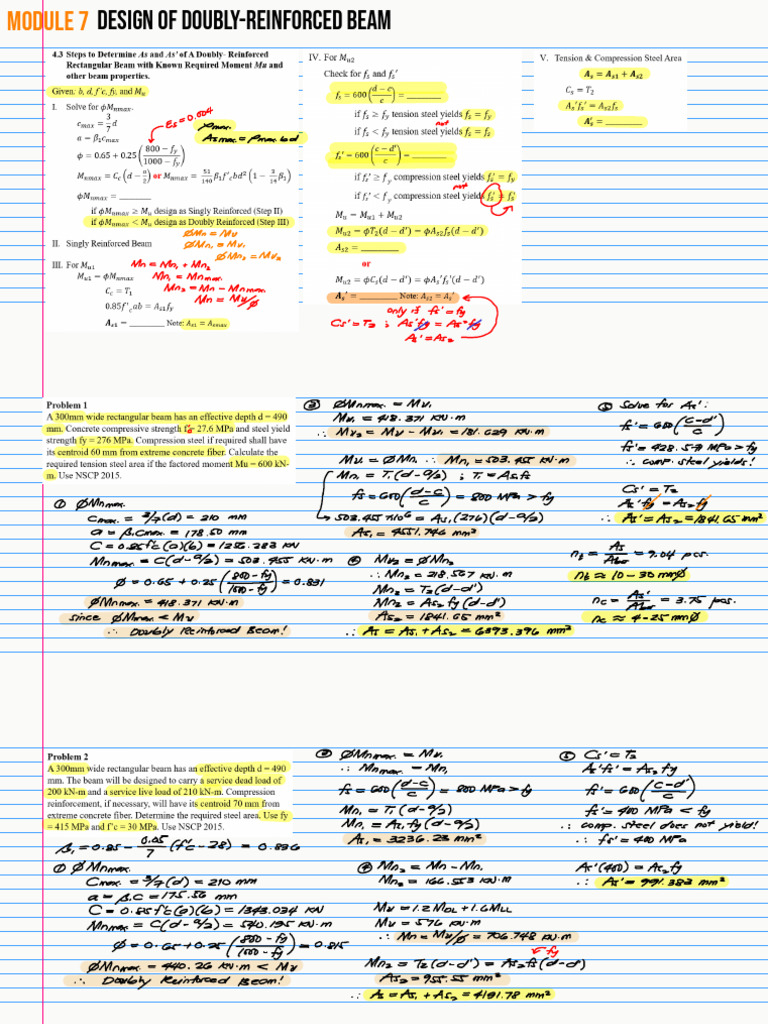 MODULE 7 DESIGN OF DOUBLY-REINFORCED BEAM
4.3 Steps to Determine As and As' of A Doubly- Reinforced
Rectangular Beam with Known Required Moment Mu and
other beam properties.
Given: b, d, f'c, fy, and Mu
I. Solve for ϕMnmax.
cmax = 3/7 d
a = β1cmax
Es = 0.004
ρmax.
Asmax. = ρmax. bd
ϕ = 0.65 + 0.25 ((800 − fy)/(1000 − fy))
Mnmax = Cc (d − a/2) or Mnmax = 51/140 β1f'c bd² (1 − 3/14 β1)
ϕMnmax = ______
if ϕMnmax ≥ Mu design as Singly Reinforced (Step II)
if ϕMnmax < Mu design as Doubly Reinforced (Step III)
ØMn = Mu
II. Singly Reinforced Beam
ØMn1 = Mu1
ØMn2 = Mu2
III. For Mu1
Mn = Mn1 + Mn2
Mu1 = ϕMnmax
Mn1 = Mnmax.
Cc = T1
Mn2 = Mn - Mnmax.
0.85f'c ab = As1fy
Mn = Mu/Ø
As1 = ______ Note: As1 = Asmax
IV. For Mu2
Check for fs and fs'
fs = 600 ((d − c)/c) = ______
if fs ≥ fy tension steel yields fs = fy
not
if fs < fy tension steel yields fs = fs
fs' = 600 ((c − d')/c) = ______
if fs' ≥ fy compression steel yields fs' = fy
not
if fs' < fy compression steel yields fs' = fs'
Mu = Mu1 + Mu2
Mu2 = ϕT2(d − d') = ϕAs2fs(d − d')
As2 = ______
or
Mu2 = ϕCs(d − d') = ϕAs'fs'(d − d')
As' = ______ Note: As2 = As'
only if fs' = fy
Cs' = T2 ; As'fy = As2fy
As' = As2
V. Tension & Compression Steel Area
As = As1 + As2
Cs = T2
As'fs' = As2fs
As' = ______
Problem 1
A 300mm wide rectangular beam has an effective depth d = 490
mm. Concrete compressive strength fc= 27.6 MPa and steel yield
strength fy = 276 MPa. Compression steel if required shall have
its centroid 60 mm from extreme concrete fiber. Calculate the
required tension steel area if the factored moment Mu = 600 kN-
m. Use NSCP 2015.
① ØMnmax.
Cmax. = 3/7(d) = 210 mm
a = β1Cmax. = 178.50 mm
C = 0.85f'c(a)(b) = 1256.283 KN
Mnmax = C(d-a/2) = 503.455 KN.m
Ø = 0.65 + 0.25 ((800-fy)/(1000-fy)) = 0.831
ØMnmax = 418.371 KN.m
since ØMnmax < Mu
∴ Doubly Reinforced Beam!
② ØMnmax. = Mu1
Mu1 = 418.371 KN.m
∴ Mu2 = Mu - Mu1 = 181.629 KN.m
Mu1 = ØMn1 ∴ Mn1 = 503.455 KN.m
Mn1 = T1(d-a/2) ; T1 = As1fs
fs = 600((d-c)/c) = 800 MPa > fy
503.455x10⁶ = As1(276)(d-a/2)
As1 = 4551.746 mm²
④ Mu2 = ØMn2
∴ Mn2 = 218.567 KN.m
Mn2 = T2(d-d')
Mn2 = As2 fy(d-d')
As2 = 1841.65 mm²
∴ As = As1 + As2 = 6393.396 mm²
⑤ Solve for As':
fs' = 600((c-d')/c)
fs' = 428.57 MPa > fy
∴ comp. steel yields!
Cs' = T2
As'fy = As2fy
∴ As' = As2 = 1841.65 mm²
nt = As/Ab = 9.04 pcs.
nt ≈ 10 - 30 mmØ
nc = As'/Ab = 3.75 pcs.
nc ≈ 4 - 25 mmØ
Problem 2
A 300mm wide rectangular beam has an effective depth d = 490
mm. The beam will be designed to carry a service dead load of
200 kN-m and a service live load of 210 kN-m. Compression
reinforcement, if necessary, will have its centroid 70 mm from
extreme concrete fiber. Determine the required steel area. Use fy
= 415 MPa and f'c = 30 MPa. Use NSCP 2015.
β1 = 0.85 - 0.05/7 (f'c - 28) = 0.836
① ØMnmax.
Cmax. = 3/7(d) = 210 mm
a = β1C = 175.56 mm
C = 0.85f'c(a)(b) = 1343.034 KN
Mnmax = C(d-a/2) = 540.195 KN.m
Ø = 0.65 + 0.25 ((800-fy)/(1000-fy)) = 0.815
ØMnmax. = 440.26 KN.m < Mu
∴ Doubly Reinforced Beam!
② ØMnmax. = Mu1
∴ Mnmax. = Mn1
fs = 600((d-c)/c) = 800 MPa > fy
Mn1 = T1(d-a/2)
Mn1 = As1fy(d-a/2)
As1 = 3236.23 mm²
④ Mn2 = Mn - Mn1
Mn2 = 166.553 KN.m
Mu = 1.2MDL + 1.6MLL
Mu = 576 KN.m
∴ Mn = Mu/Ø = 706.748 KN.m
fy
Mn2 = T2(d-d') = As2fs(d-d')
As2 = 955.55 mm²
∴ As = As1 + As2 = 4191.78 mm²
⑤ Cs' = T2
As'fs' = As2fy
fs' = 600((c-d')/c)
fs' = 400 MPa < fy
∴ comp. steel does not yield!
∴ fs' = 400 MPa
As'(400) = As2fy
∴ As' = 991.383 mm²